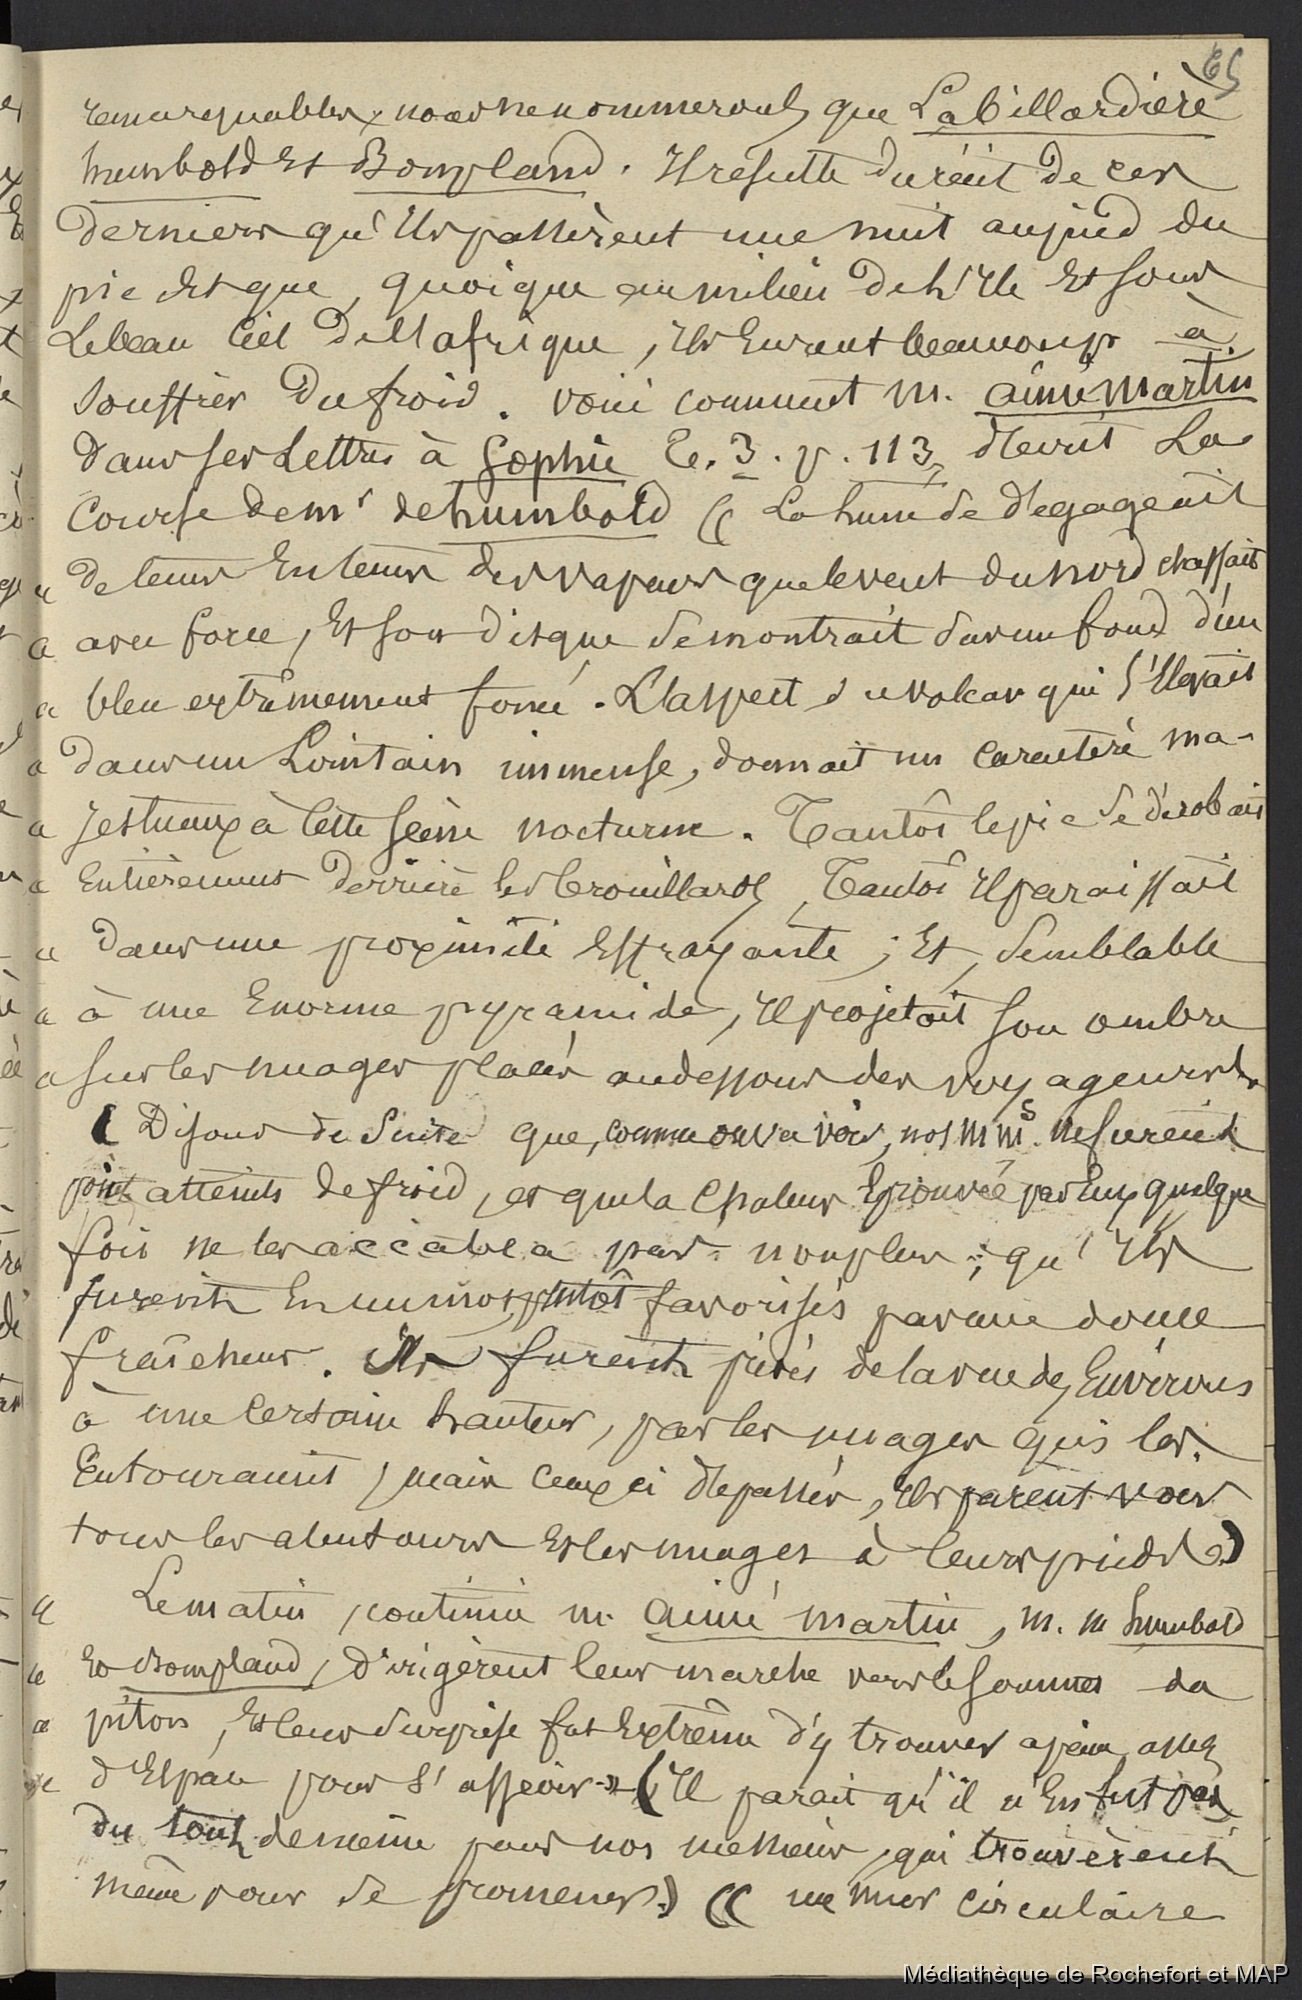 65
remarquables, nous ne nommerons que Labillardière
humbold Et Bompland. Il résulte du récit de ces
derniers qu'Ils passèrent une nuit au pied du
pic Et que, quoique au milieu de l'Ile Et sous
Le beau Ciel de l'afrique, Ils Eurent beaucoup à
souffrir du froid. voici comment M. aimé martin
dans ses Lettres à Sophie T. 3. p. 113, décrit La
Course de mr de humbold (( La lune se dégageait
« de leurs En leurs des vapeurs que le vent du nord chassait
« avec force, Et son disque se montrait sur un fond d'un
« bleu extrêmement foncé. L'aspect du volcan qui s'Elevait
« dans un Lointain immense, donnait un caractère ma-
« jestueux à Cette scène nocturne. Tantôt le pic se dérobait
« Entièrement derrière les brouillards, Tantôt Il paraissait
« dans une proximité Effrayante; Et, semblable
« à une Enorme pyramide, Il projetait son ombre
« sur les nuages placés au dessous des voyageurs.
( Disons de suite que, comme on va voir, nos MMs. ne furent
point atteints de froid, et que la Chaleur Eprouvée par Eux quelque
fois ne les accabla pas non plus; qu'Ils
furent En un mot plutôt favorisés par une douce
fraîcheur. Ils furent privés de la vue des Environs
à une Certaine hauteur, par les nuages qui les
Entouraient, mais Ceux ci dépassés, Ils purent voir
tous les alentours Et les nuages à leurs pieds.)
« Le matin, continue m. aimé martin, M. M humbold
« Et Bompland, dirigèrent leur marche vers le sommet du
« piton, Et leur surprise fut Extrême d'y trouver à peine assez
« d'Espace pour s'asseoir » ( Il parait qu'il n'En fut pas
du tout de même pour nos messieurs, qui trouvèrent
même pour se promener.) (( un mur circulaire
Médiathèque de Rochefort et MAP